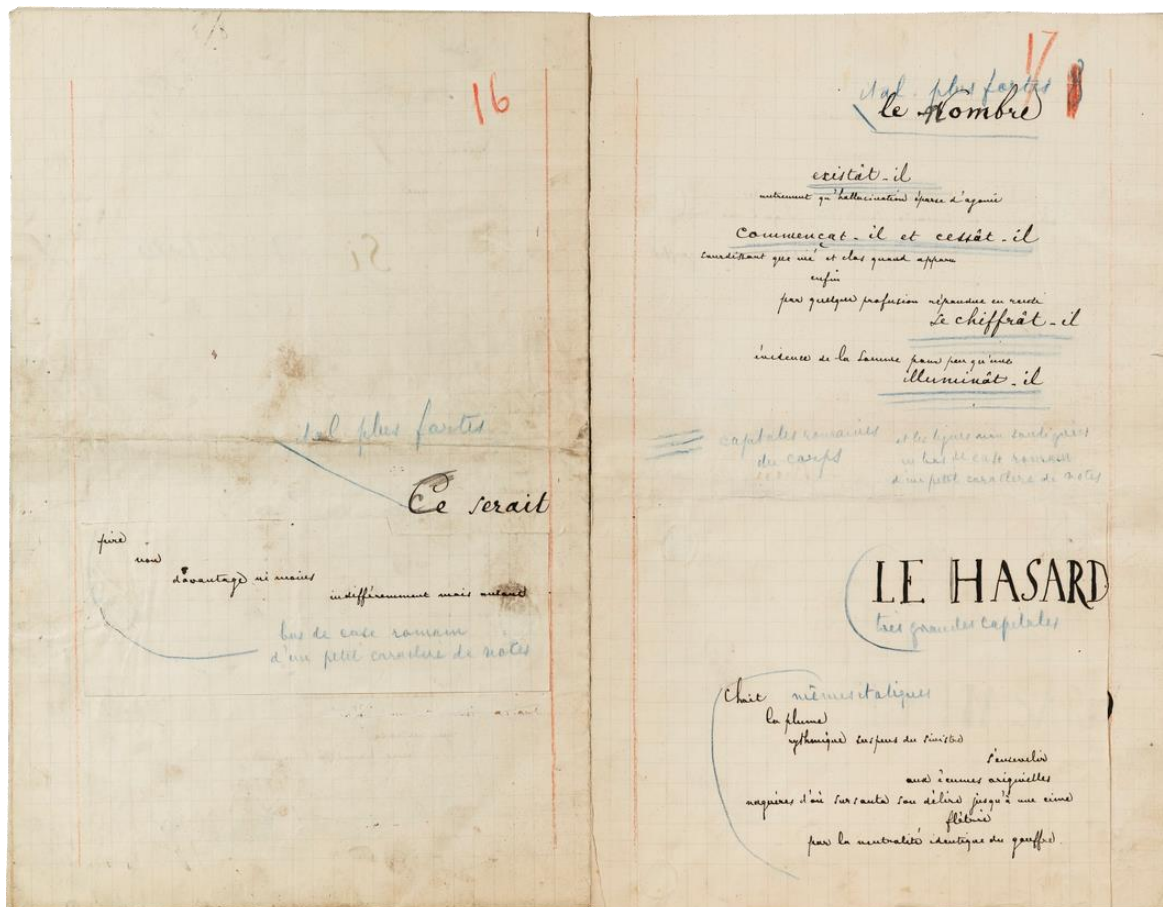 16
ital plus fortes
Ce serait
pire
non
davantage ni moins
indifféremment mais autant
bas de case romain
d'un petit caractère de notes
17
ital. plus fortes
le Nombre
existât-il
autrement qu'hallucination éparse d'agonie
commençât-il et cessât-il
sourdissant que nié et clos quand apparu
enfin
par quelque profusion répandue en rareté
se chiffrât-il
évidence de la somme pour peu qu'une
illuminât-il
capitales romaines
du corps
et les lignes non soulignées
en bas de case romain
d'un petit caractère de notes
LE HASARD
très grandes capitales
Choit mêmes italiques
la plume
rythmique suspens du sinistre
s'ensevelir
aux écumes originelles
naguères d'où sursauta son délire jusqu'à une cime
flétrie
par la neutralité identique du gouffre